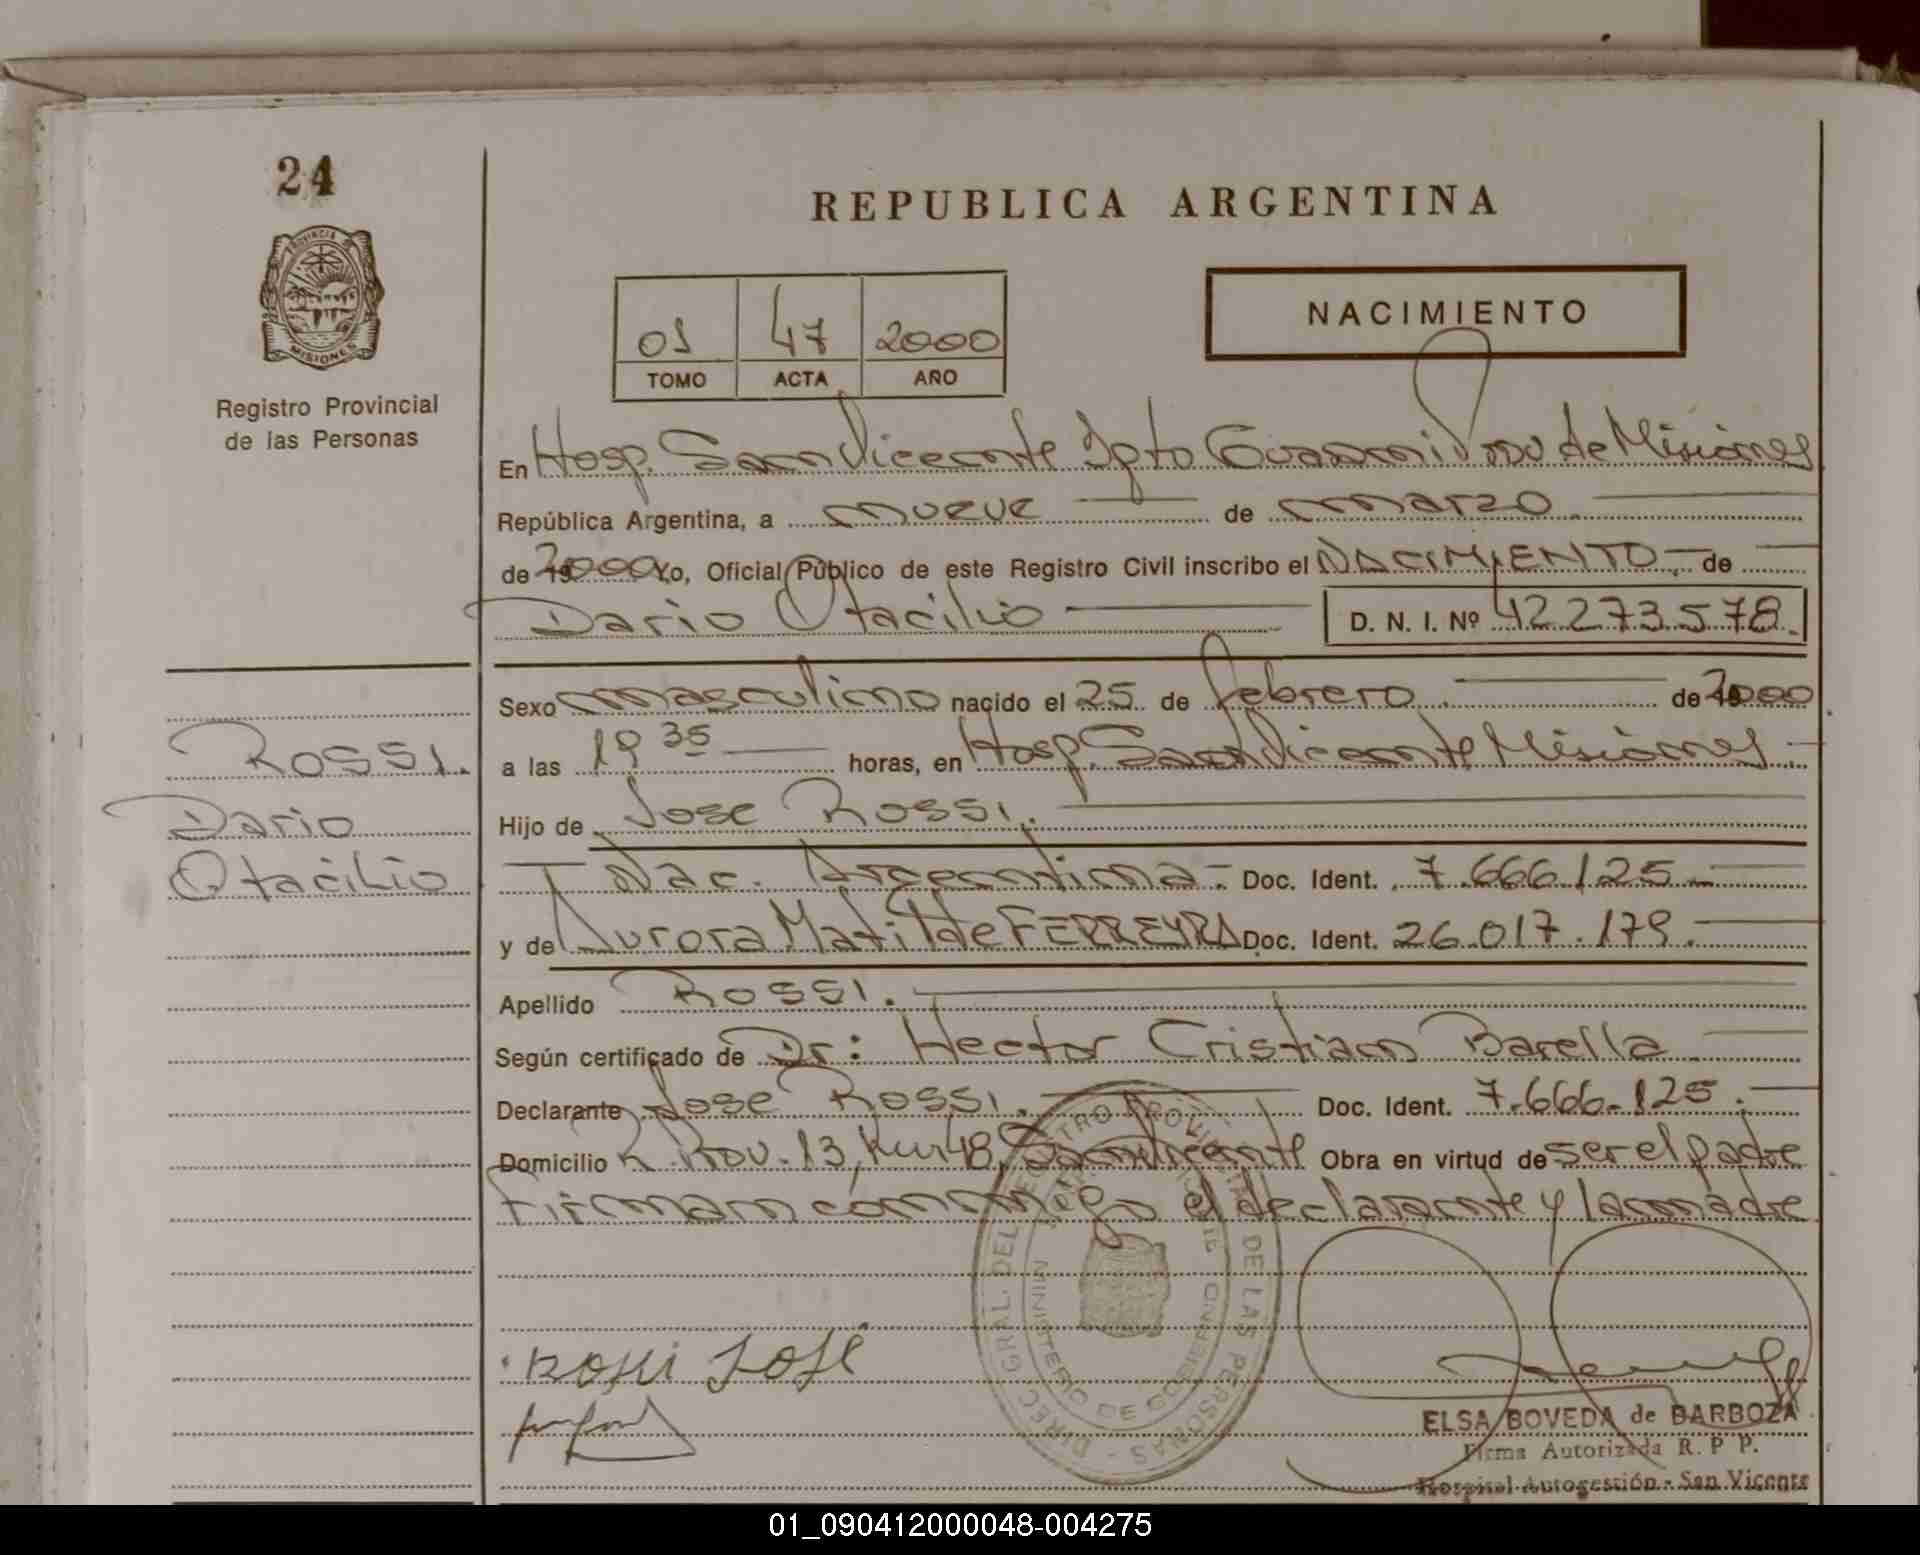 24
PROVINCIA DE
MISIONES
Registro Provincial
de las Personas
REPUBLICA ARGENTINA
01 47 2000
TOMO ACTA AÑO
NACIMIENTO
En Hosp. San Vicente Dpto Guarani Prov de Misiones
República Argentina, a nueve de marzo
de 2000 Yo, Oficial Público de este Registro Civil inscribo el NACIMIENTO de
Dario Otacilio D. N. I. Nº 42273578.
Sexo masculino nacido el 25 de febrero de 2000
a las 19 35 horas, en Hosp. San Vicente Misiones
Rossi.
Hijo de Jose Rossi.
Dario
Otacilio
Nac. Argentina Doc. Ident. 7.666.125
y de Aurora Matilde FERREYRA Doc. Ident. 26.017.179.
Apellido Rossi.
Según certificado de Dr: Hector Cristian Barella
Declarante Jose Rossi. Doc. Ident. 7.666.125.
Domicilio R. Prov. 13, Km 48, San Vicente Obra en virtud de ser el padre
Firman conmigo el declarante y la madre
DIREC. GRAL. DEL REGISTRO PROVINCIAL DE LAS PERSONAS
MINISTERIO DE GOBIERNO
ROSSI JOSÉ
ELSA BOVEDA de BARBOZA
Firma Autorizada R. P P.
Hospital Autogestión - San Vicente
01_090412000048-004275